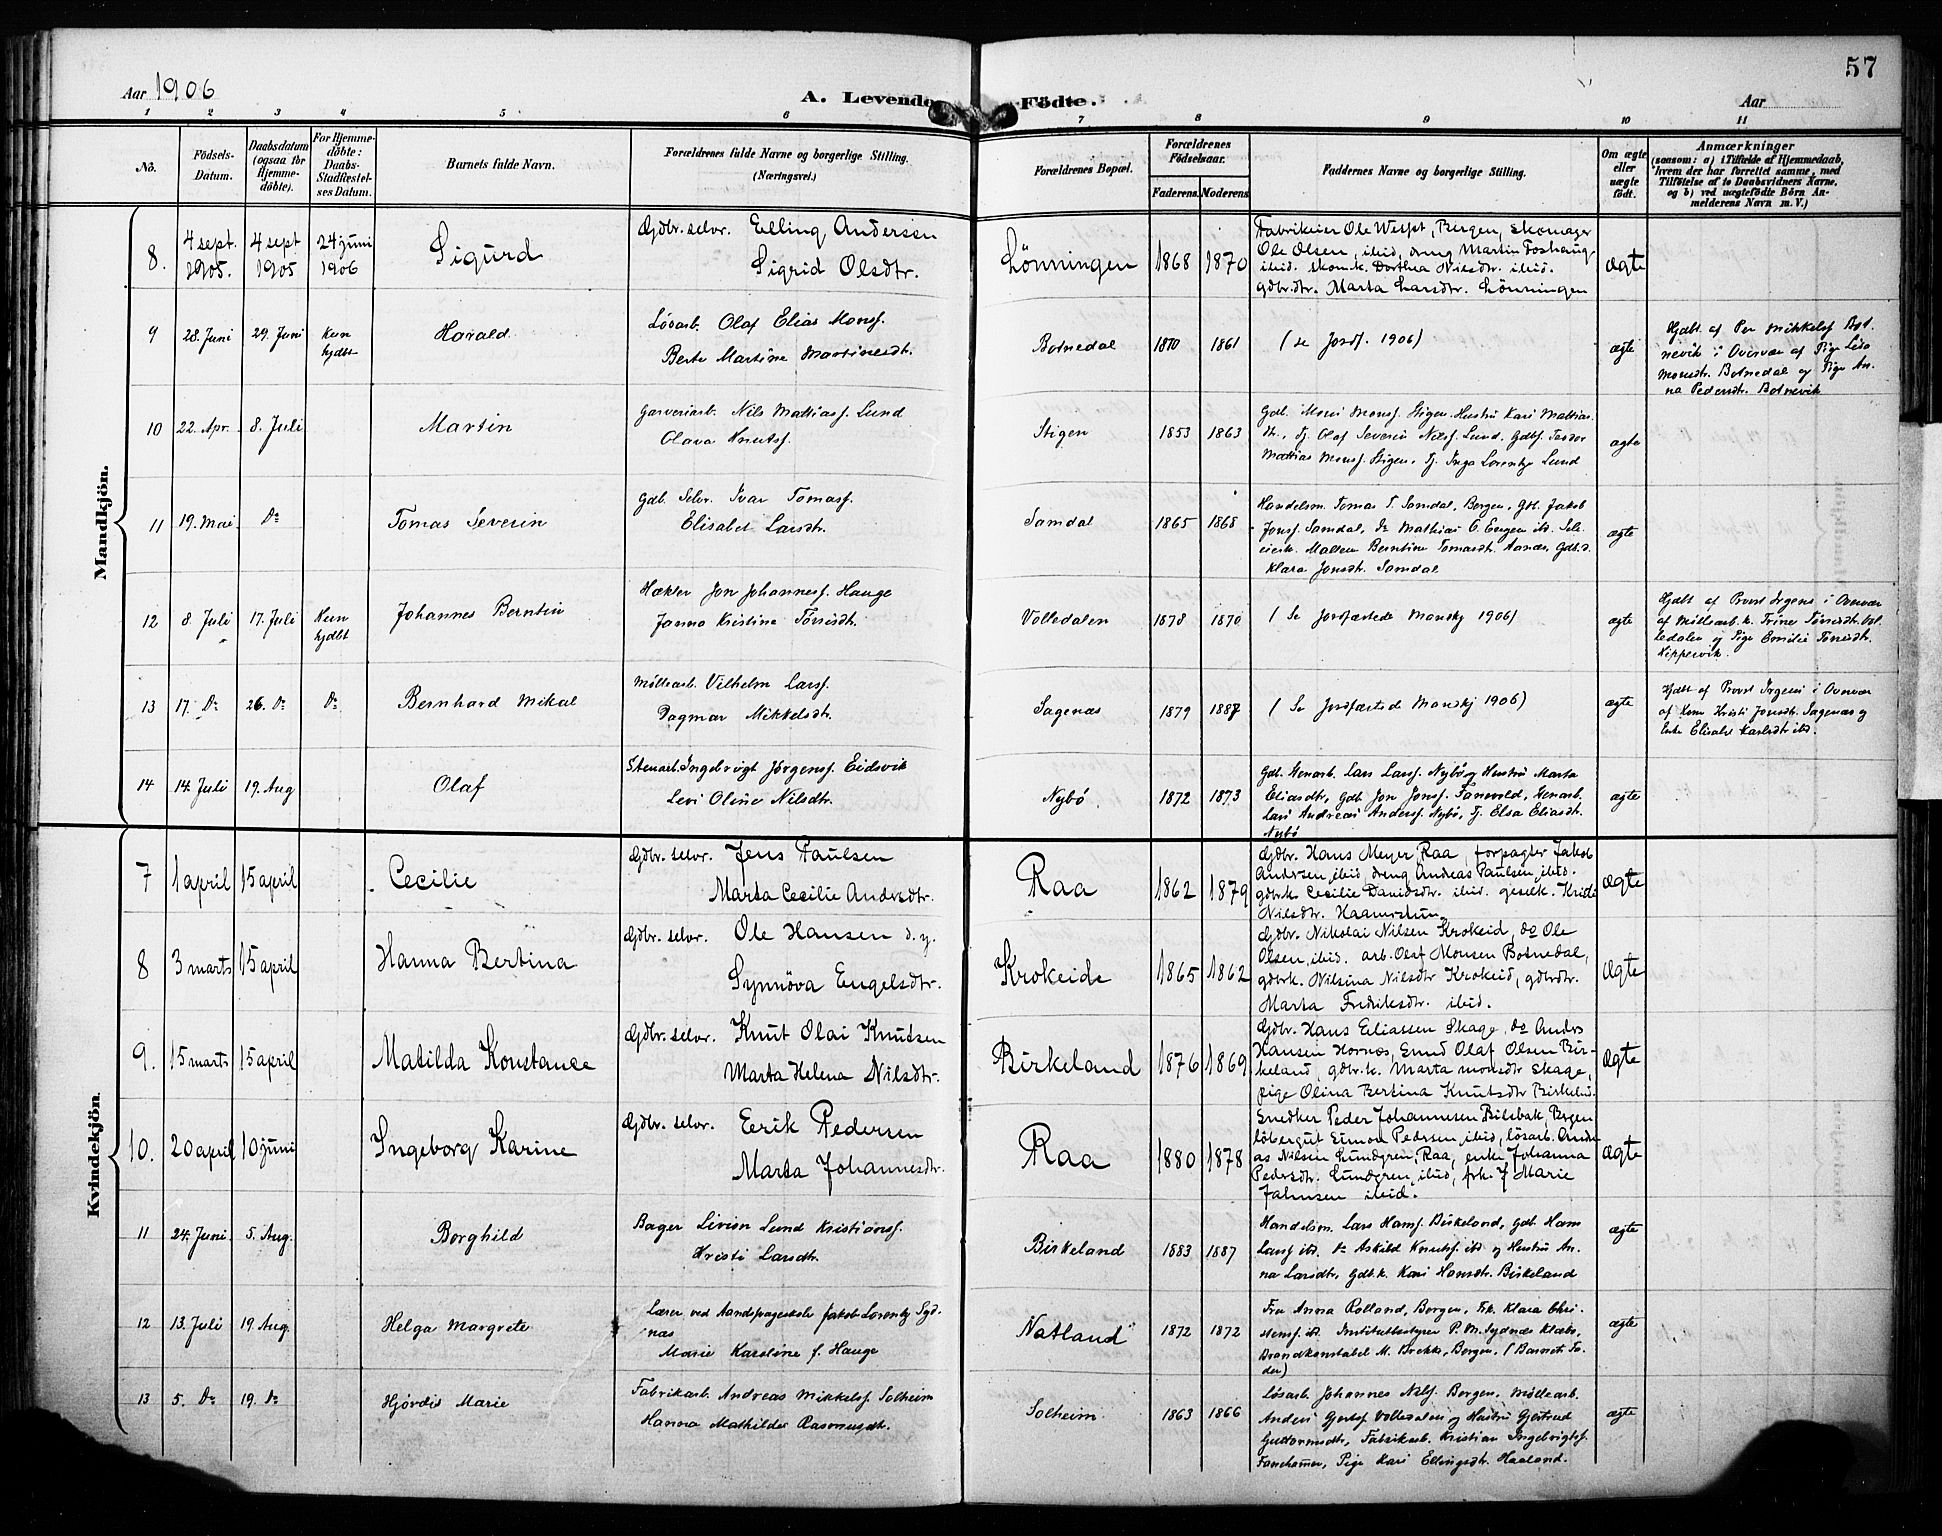 57
Aar 1906
A. Levende Födte.
Aar
1 2 3 4 5 6 7 8 9 10 11
No.
Födsels-Datum.
Daabsdatum (ogsaa for Hjemmedöbte).
For Hjemmedöbte: Daabs-Stadfæstelses Datum.
Barnets fulde Navn.
Forældrenes fulde Navne og borgerlige Stilling. (Næringsvei.)
Forældrenes Bopæl.
Forældrenes Födselsaar.
Faderens. Moderens.
Faddernes Navne og borgerlige Stilling.
Om ægte eller uægte födt.
Anmærkninger
(saasom: a) i Tilfælde af Hjemmedaab, hvem der har forrettet samme, med Tilföielse af to Daabsvidners Navne, og b) ved uægtefödte Börn Anmelderens Navn m. V.)
Mandkjön.
8. 4 sept. 1905. 4 sept 1905 24 juni 1906 Sigurd
Gdbr. selv. Elling Andersen
Sigrid Olsdtr.
Lönningen 1868 1870
Fabrikeier Ole Bergen, Skomager
Ole Olsen, ibid, dreng Martin
ibid. skom.k. Dorthea Nilsdtr. ibid.
gdbr.dtr. Marta Larsdtr. Lönningen
ægte
9 28. Juni 29. Juni Kun hjdbt Harald
Løsarb. Olaf Elias Monsf.
Berte Martine Martinesdt.
Botnedal 1870 1861 (se Jordf. 1906) ægte
Hjdbt. af Per Mikkelsf Botnevik i Overvær af Pige Lisa
Monsdtr. Botnedal og Pige Anna Pedersdtr. Botnevik
10 22. Apr. 8. Juli Martin
Garveriarb. Nils Mattiasf. Lund
Olava Knutsf.
Stigen 1853 1863
Gdb. Moni Monsf. Stigen. Hustru Kari Mattiasdt., Tj. Olaf Severin Nilsf. Lund. Gdbf. Teodor
Mattias Monsf. Stigen, Tj. Inga Lorentze Lund
ægte
11 19. Mai Do Tomas Severin
Gdb. Selv. Ivar Tomasf.
Elisabet Larsdtr.
Samdal 1865 1868
Handelsm. Tomas T. Samdal, Bergen, Gdb. Jakob
Jonsf. Samdal, Do Mathias O.
Berntine Tomasdt. Aanæs, Gdb.d.
Klara Jonsdt. Samdal
ægte
12 8. Juli 17. Juli Kun hjdbt Johannes Berntin
Hækler Jon Johannesf. Hauge
Janna Kristine Tørrisdt.
Volledalen 1878 1870 (Se Jordfæstede Mandkj 1906) ægte
Hjdbt af Provst Irgens i Overvær
af Møllearb. k. Trine Tørrisdt. Volledalen og Pige Emilie Tørrisdt.
Kippersvik.
13 17. Do 26. Do Do Bernhard Mikal
Møllearb. Vilhelm Larsf.
Dagmar Mikkelsdt.
Sagenæs 1879 1887 (Se Jordfæstede Mandkj 1906) ægte
Hjdbt af Provst Irgens i Overvær
af Kone Kristi Jonsdt. Sagenæs og
Enke Elisabet Karlsdtr ibd.
14 14. Juli 19. Aug Olaf
Stenarb. Ingebrigt Jørgensf. Eidsvik
Sevi Oline Nilsdtr.
Nybø 1872 1873
Gdb. Stenarb. Lars Larsf. Nybø og Hustru Marta
Eliasdtr, Gdb Jon Jonsf. Stenarb.
Lars Andreas Andersf. Nybø, Tj. Elsa Eliasdt.
Nybø
ægte
Kvindekjön.
7 1 april 15 april Cecilie
Gdbr. selv. Jens Paulsen
Marta Cecilie Andersdtr.
Raa 1862 1879
Gdbr. Hans Meyer Raa, forpagter Jakob
Andersen, ibid, dreng Andreas Paulsen, ibid.
gdbrk. Cecilie Davidsdtr. ibid. Kristi
Nilsdtr.
ægte
8 3 marts 15 april Hanna Bertina
Gdbr. selv. Ole Hansen d. y.
Synnöva Engelsdtr.
Krokeide 1865 1862
Gdbr. Nikolai Nilsen Krokeid, do Ole
Olsen, ibid. arb. Olaf Monsen Botnedal,
gdbrk. Nilsina Nilsdtr Krokeid, gdbrdtr.
Marta Fredriksdtr. ibid.
ægte
9. 15 marts 15 april Matilda Konstance
Gdbr. selv. Knut Olai Knutsen
Marta Helena Nilsdtr.
Birkeland 1876 1869
Gdbr. Hans Eliassen Skage, do Anders
Hansen Hornæs, Smed Olaf Olsen Birkeland, gdbr.k. Marta Monsdtr Skage,
pige Olina Bertina Knutsdtr Birkelnd.
ægte
10. 20 april 10 juni Ingeborg Karine
Gdbr. selv. Eerik Pedersen
Marta Johannesdtr.
Raa 1880 1878
Snedker Peder Johannesen Bildbak, Brgen
löbergut Simon Pedrsen, ibid, lösarb. Andreas Nilsen Lundgren, Raa, enke Johanna
Pedersdtr. Lundgren, ibid, frk. J Marie
Jahnsen ibid.
ægte
11 24. Juni 5. Aug. Borghild
Bager Sivien Lund Kristiansf.
Kristi Larsdt.
Birkeland 1883 1887
Handelsm. Lars Hansf. Birkeland, Gdb. Hans
Larsf ibd. Do Askild Knutsf. ibd og Hustru Anna Larsdtr, Gdb.k. Kari Hansdtr. Birkeland
ægte
12 13. Juli 19. Aug. Helga Margrete
Lærer ved Aandsvageskole Jakob Lorentz Sydnæs
Marie Karoline f. Hauge
Natland 1872 1872
Fru Anna Rolland, Bergen, Frk. Klara Christensf. ibd. Institutbestyrer P. M. Sydnæs Klæbo,
Brandkonstabel M. Brekke, Bergen. (Barnets Fader)
ægte
13 5. Do 19. Do Hjørdis Marie
Fabrikarb. Andreas Mikkelsf. Solheim
Hanna Mathilde Rasmusdt.
Solheim 1863 1866
Løsarb. Johannes Nilsf. Bergen, Møllearb.
Anders Gjertsf Volledalen og Hustru Gjertrud
Guttormsdtr, Fabrikarb. Kristian Ingebrigtsf.
Fanehamer, Pige Kari Ellingsdtr. Haaland.
ægte